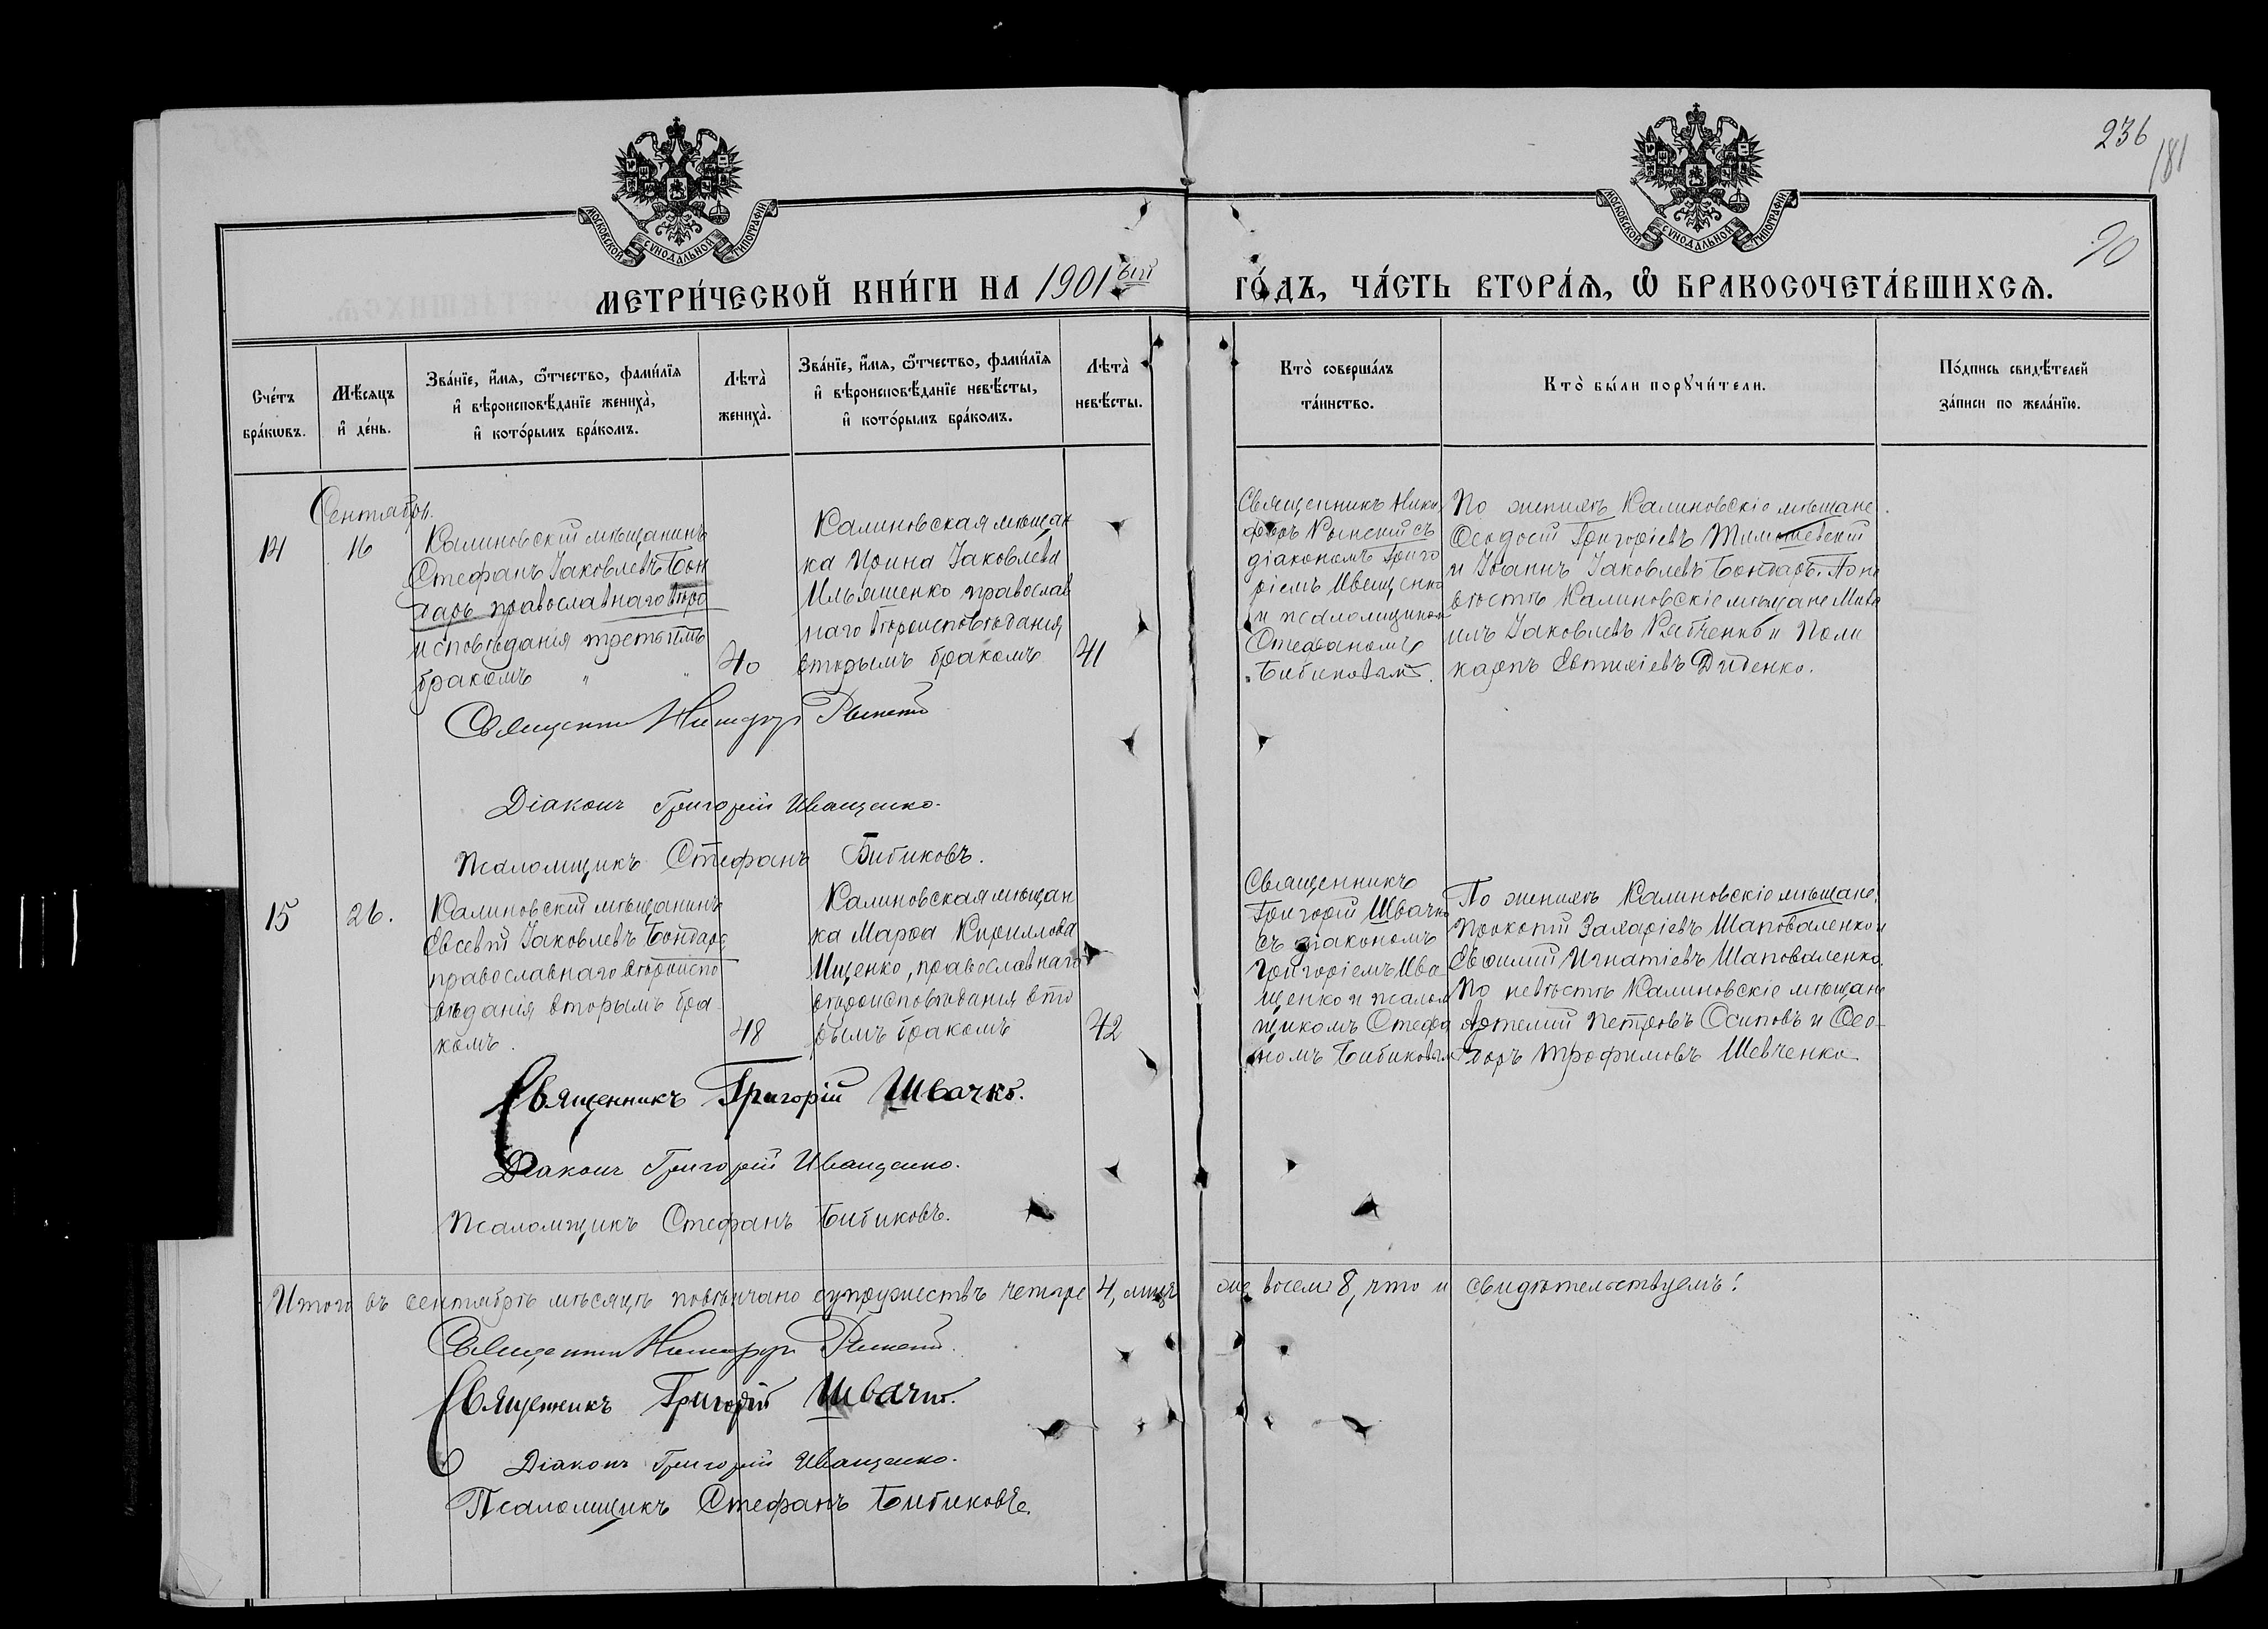 236
181
90
МОСКОВСКОЙ СѴНОДАЛЬНОЙ ТИПОГРАФІИ
МОСКОВСКОЙ СѴНОДАЛЬНОЙ ТИПОГРАФІИ
МЕТРИ́ЧЕСКОЙ КНИ́ГИ НА 1901 вый ГО́ДЪ, ЧА́СТЬ ВТОРА́Ѧ, Ѡ҆ БРАКОСОЧЕТА́ВШИХСѦ.
Сче́тъ
бра́кѡвъ.
Мѣ́сѧцъ
и҆ де́нь.
Зва́нїе, и҆́мѧ, ѻ҆́тчество, фами́лїѧ
и҆ вѣроисповѣ́данїе жениха̀,
и҆ кото́рымъ бра́комъ.
Лѣта̀
жениха̀.
Зва́нїе, и҆́мѧ, ѻ҆́тчество, фами́лїѧ
и҆ вѣроисповѣ́данїе невѣ́сты,
и҆ кото́рымъ бра́комъ.
Лѣта̀
невѣ́сты.
Кто̀ соверша́лъ
та́инство.
Кто̀ бы́ли порꙋчи́тели.
По́дпись свидѣ́телей
за́писи по жела́нїю.
Сентябрь.
14
16
Калиновскій мѣщанинъ
Стефанъ Іаковлевъ Бон
дарь православнаго вѣро
исповѣданія третьимъ
бракомъ " "
40
Калиновская мѣщан
ка Ирина Іаковлева
Ильяшенко православ
наго вѣроисповѣданія
вторымъ бракомъ
41
Священникъ Ники
форъ съ
діакономъ Григо
ріемъ Иващенко
и псаломщикомъ
Стефаномъ
Бибиковымъ.
По женихѣ Калиновскіе мѣщане
Ѳеодосій Григоріевъ
и Іоаннъ Іаковлевъ Бондарь. По не
вѣстѣ Калиновскіе мѣщане Миха
илъ Іаковлевъ Рябченко и Поли
карпъ Евтихіевъ Диденко.
Священникъ Никифоръ
Діаконъ Григорій Иващенко.
Псаломщикъ Стефанъ Бибиковъ.
15
26.
Калиновскій мѣщанинъ
Евсевій Іаковлевъ Бондарь
православнаго вѣроиспо
вѣданія вторымъ бра
комъ.
48
Калиновская мѣщан
ка Марѳа Кириллова
Ищенко, православнаго
вѣроисповѣданія вто
рымъ бракомъ
42
Священникъ
Григорій Швачко
съ діакономъ
Григоріемъ Ива
щенко и псалом
щикомъ Стефа
номъ Бибиковым
По женихѣ Калиновскіе мѣщане,
Прокопій Захаріевъ Шаповаленко и
Евѳимій Игнатіевъ Шаповаленко.
По невѣстѣ Калиновскіе мѣщане
Артемій Петровъ Осиповъ и Ѳео-
доръ Трофимовъ Шевченко
Священникъ Григорій Швачко.
Діаконъ Григорій Иващенко.
Псаломщикъ Стефанъ Бибиковъ.
Итого въ сентябрѣ мѣсяцѣ повѣнчано супружествъ четыре 4, лицъ же восемь 8, что и свидѣтельствуемъ:
Священникъ Никифоръ
Священникъ Григорій Швачко.
Діаконъ Григорій Иващенко.
Псаломщикъ Стефанъ Бибиковъ.